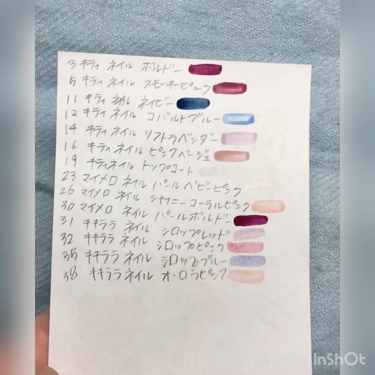 3 キティ ネイル ボルドー
5 キティ ネイル スモーキーピンク
11 キティ ネイル ネイビー
12 キティ ネイル コバルトブルー
14 キティ ネイル ソフトラベンダー
16 キティ ネイル ピンクベージュ
19 キティネイル トップコート
23 マイメロ ネイル パールベビーピンク
26 マイメロ ネイル シャイニーコーラルピンク
30 マイメロ ネイル パールボルドー
31 キキララ ネイル シロップレッド
32 キキララ ネイル シロップピンク
35 キキララ ネイル シロップブルー
38 キキララ ネイル オーロラピンク
InShOt